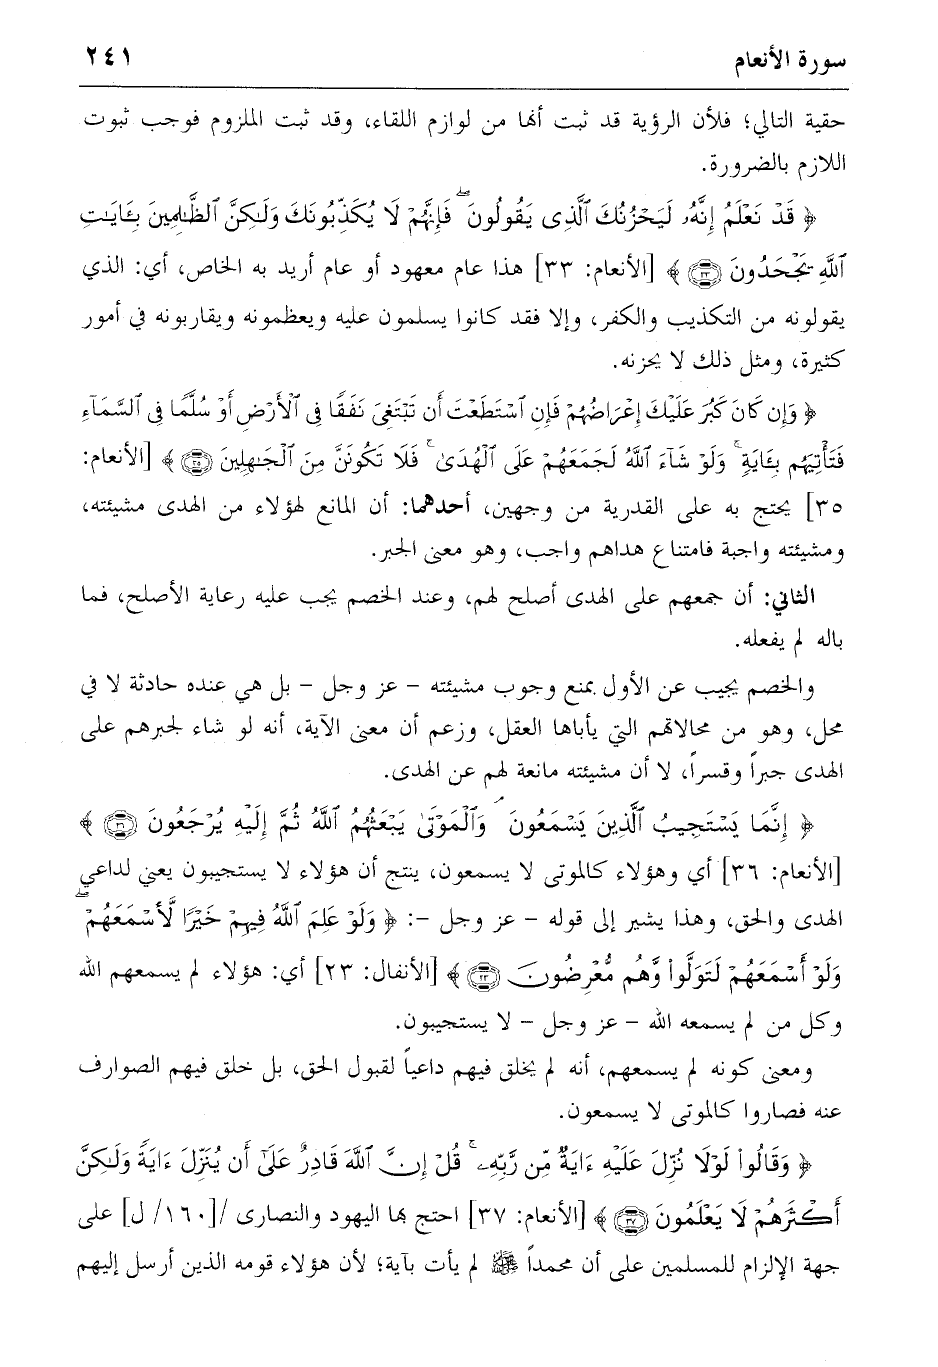 سورة الأنعام ٢٤١
حقية التالي؛ فلأن الرؤية قد ثبت أنها من لوازم اللقاء، وقد ثبت الملزوم فوجب ثبوت
اللازم بالضرورة.
﴿ قَدْ نَعْلَمُ إِنَّهُۥ لَيَحْزُنُكَ ٱلَّذِى يَقُولُونَ ۖ فَإِنَّهُمْ لَا يُكَذِّبُونَكَ وَلَـٰكِنَّ ٱلظَّـٰلِمِينَ بِـَٔايَـٰتِ
ٱللَّهِ يَجْحَدُونَ ٣٣ ﴾ [الأنعام: ٣٣] هذا عام معهود أو عام أريد به الخاص، أي: الذي
يقولونه من التكذيب والكفر، وإلا فقد كانوا يسلمون عليه ويعظمونه ويقاربونه في أمور
كثيرة، ومثل ذلك لا يحزنه.
﴿ وَإِن كَانَ كَبُرَ عَلَيْكَ إِعْرَاضُهُمْ فَإِنِ ٱسْتَطَعْتَ أَن تَبْتَغِىَ نَفَقًا فِى ٱلْأَرْضِ أَوْ سُلَّمًا فِى ٱلسَّمَآءِ
فَتَأْتِيَهُم بِـَٔايَةٍ ۚ وَلَوْ شَآءَ ٱللَّهُ لَجَمَعَهُمْ عَلَى ٱلْهُدَىٰ ۚ فَلَا تَكُونَنَّ مِنَ ٱلْجَـٰهِلِينَ ٣٥ ﴾ [الأنعام:
٣٥] يحتج به على القدرية من وجهين، أحدهما: أن المانع لهؤلاء من الهدى مشيئته،
ومشيئته واجبة فامتناع هداهم واجب، وهو معنى الجبر.
الثاني: أن جمعهم على الهدى أصلح لهم، وعند الخصم يجب عليه رعاية الأصلح، فما
باله لم يفعله.
والخصم يجيب عن الأول بمنع وجوب مشيئته - عز وجل - بل هي عنده حادثة لا في
محل، وهو من محالاتهم التي يأباها العقل، وزعم أن معنى الآية، أنه لو شاء لجبرهم على
الهدى جبراً وقسراً، لا أن مشيئته مانعة لهم عن الهدى.
﴿ إِنَّمَا يَسْتَجِيبُ ٱلَّذِينَ يَسْمَعُونَ ۘ وَٱلْمَوْتَىٰ يَبْعَثُهُمُ ٱللَّهُ ثُمَّ إِلَيْهِ يُرْجَعُونَ ٣٦ ﴾
[الأنعام: ٣٦] أي وهؤلاء كالموتى لا يسمعون، ينتج أن هؤلاء لا يستجيبون يعني لداعي
الهدى والحق، وهذا يشير إلى قوله - عز وجل -: ﴿ وَلَوْ عَلِمَ ٱللَّهُ فِيهِمْ خَيْرًا لَّأَسْمَعَهُمْ ۖ
وَلَوْ أَسْمَعَهُمْ لَتَوَلَّوا۟ وَّهُم مُّعْرِضُونَ ٢٣ ﴾ [الأنفال: ٢٣] أي: هؤلاء لم يسمعهم الله
وكل من لم يسمعه الله - عز وجل - لا يستجيبون.
ومعنى كونه لم يسمعهم، أنه لم يخلق فيهم داعياً لقبول الحق، بل خلق فيهم الصوارف
عنه فصاروا كالموتى لا يسمعون.
﴿ وَقَالُوا۟ لَوْلَا نُزِّلَ عَلَيْهِ ءَايَةٌ مِّن رَّبِّهِۦ ۚ قُلْ إِنَّ ٱللَّهَ قَادِرٌ عَلَىٰٓ أَن يُنَزِّلَ ءَايَةً وَلَـٰكِنَّ
أَكْثَرَهُمْ لَا يَعْلَمُونَ ٣٧ ﴾ [الأنعام: ٣٧] احتج بها اليهود والنصارى /[١٦٠/ ل] على
جهة الإلزام للمسلمين على أن محمداً ﷺ لم يأت بآية؛ لأن هؤلاء قومه الذين أرسل إليهم